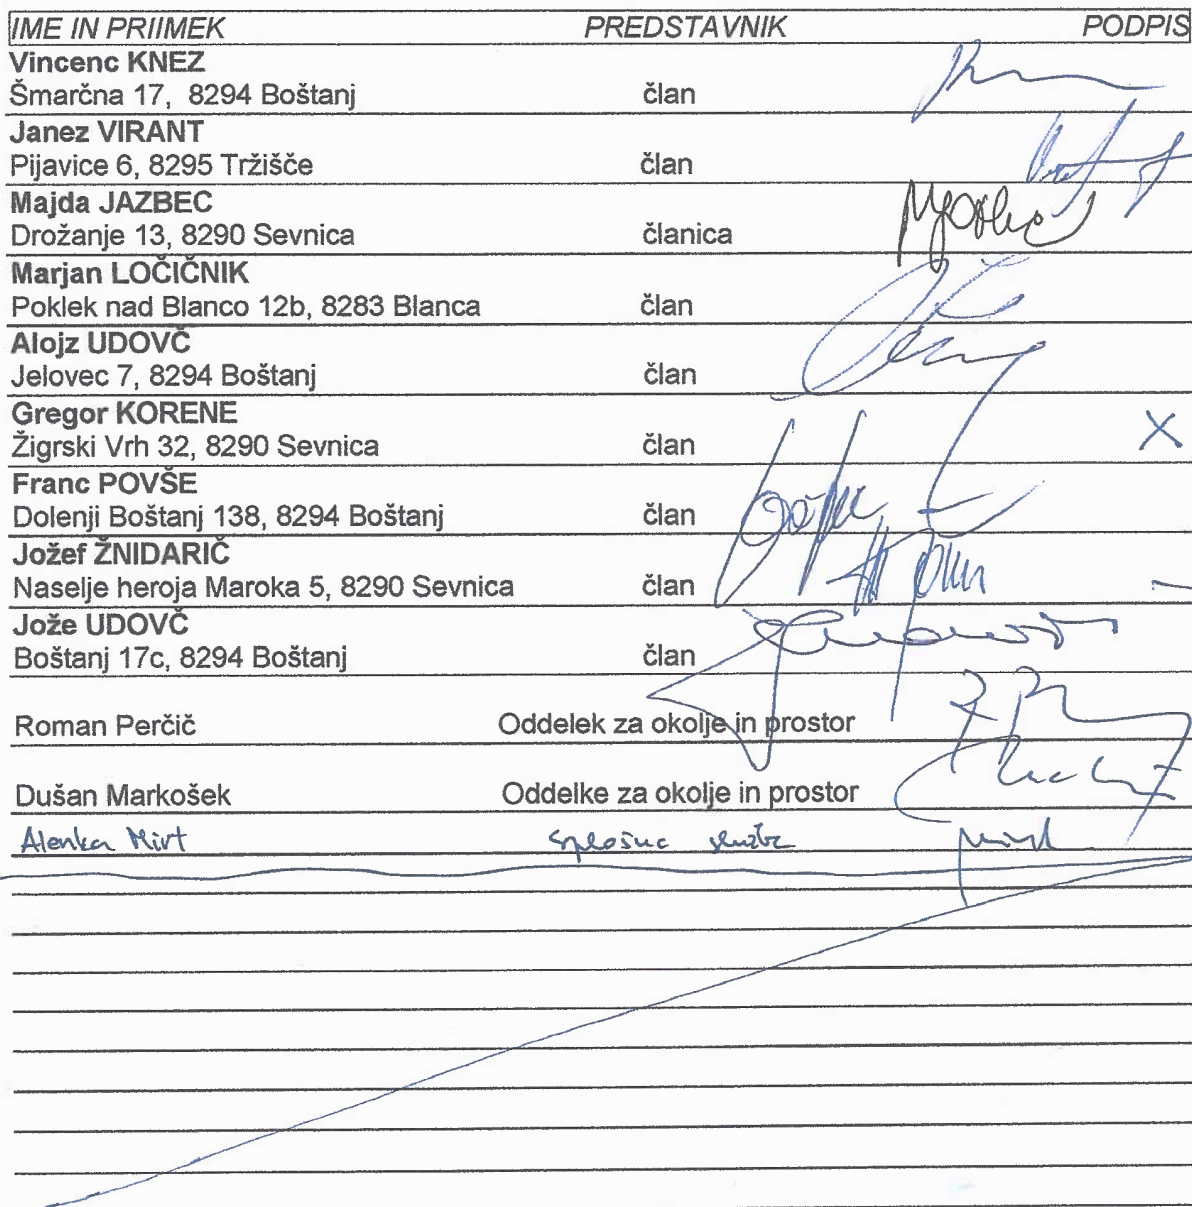 IME IN PRIIMEK PREDSTAVNIK PODPIS
Vincenc KNEZ
Šmarčna 17, 8294 Boštanj član
Janez VIRANT
Pijavice 6, 8295 Tržišče član
Majda JAZBEC
Drožanje 13, 8290 Sevnica članica
Marjan LOČIČNIK
Poklek nad Blanco 12b, 8283 Blanca član
Alojz UDOVČ
Jelovec 7, 8294 Boštanj član
Gregor KORENE
Žigrski Vrh 32, 8290 Sevnica član X
Franc POVŠE
Dolenji Boštanj 138, 8294 Boštanj član
Jožef ŽNIDARIČ
Naselje heroja Maroka 5, 8290 Sevnica član
Jože UDOVČ
Boštanj 17c, 8294 Boštanj član
Roman Perčič Oddelek za okolje in prostor
Dušan Markošek Oddelke za okolje in prostor
Alenka Mirt splošna služba Mirt